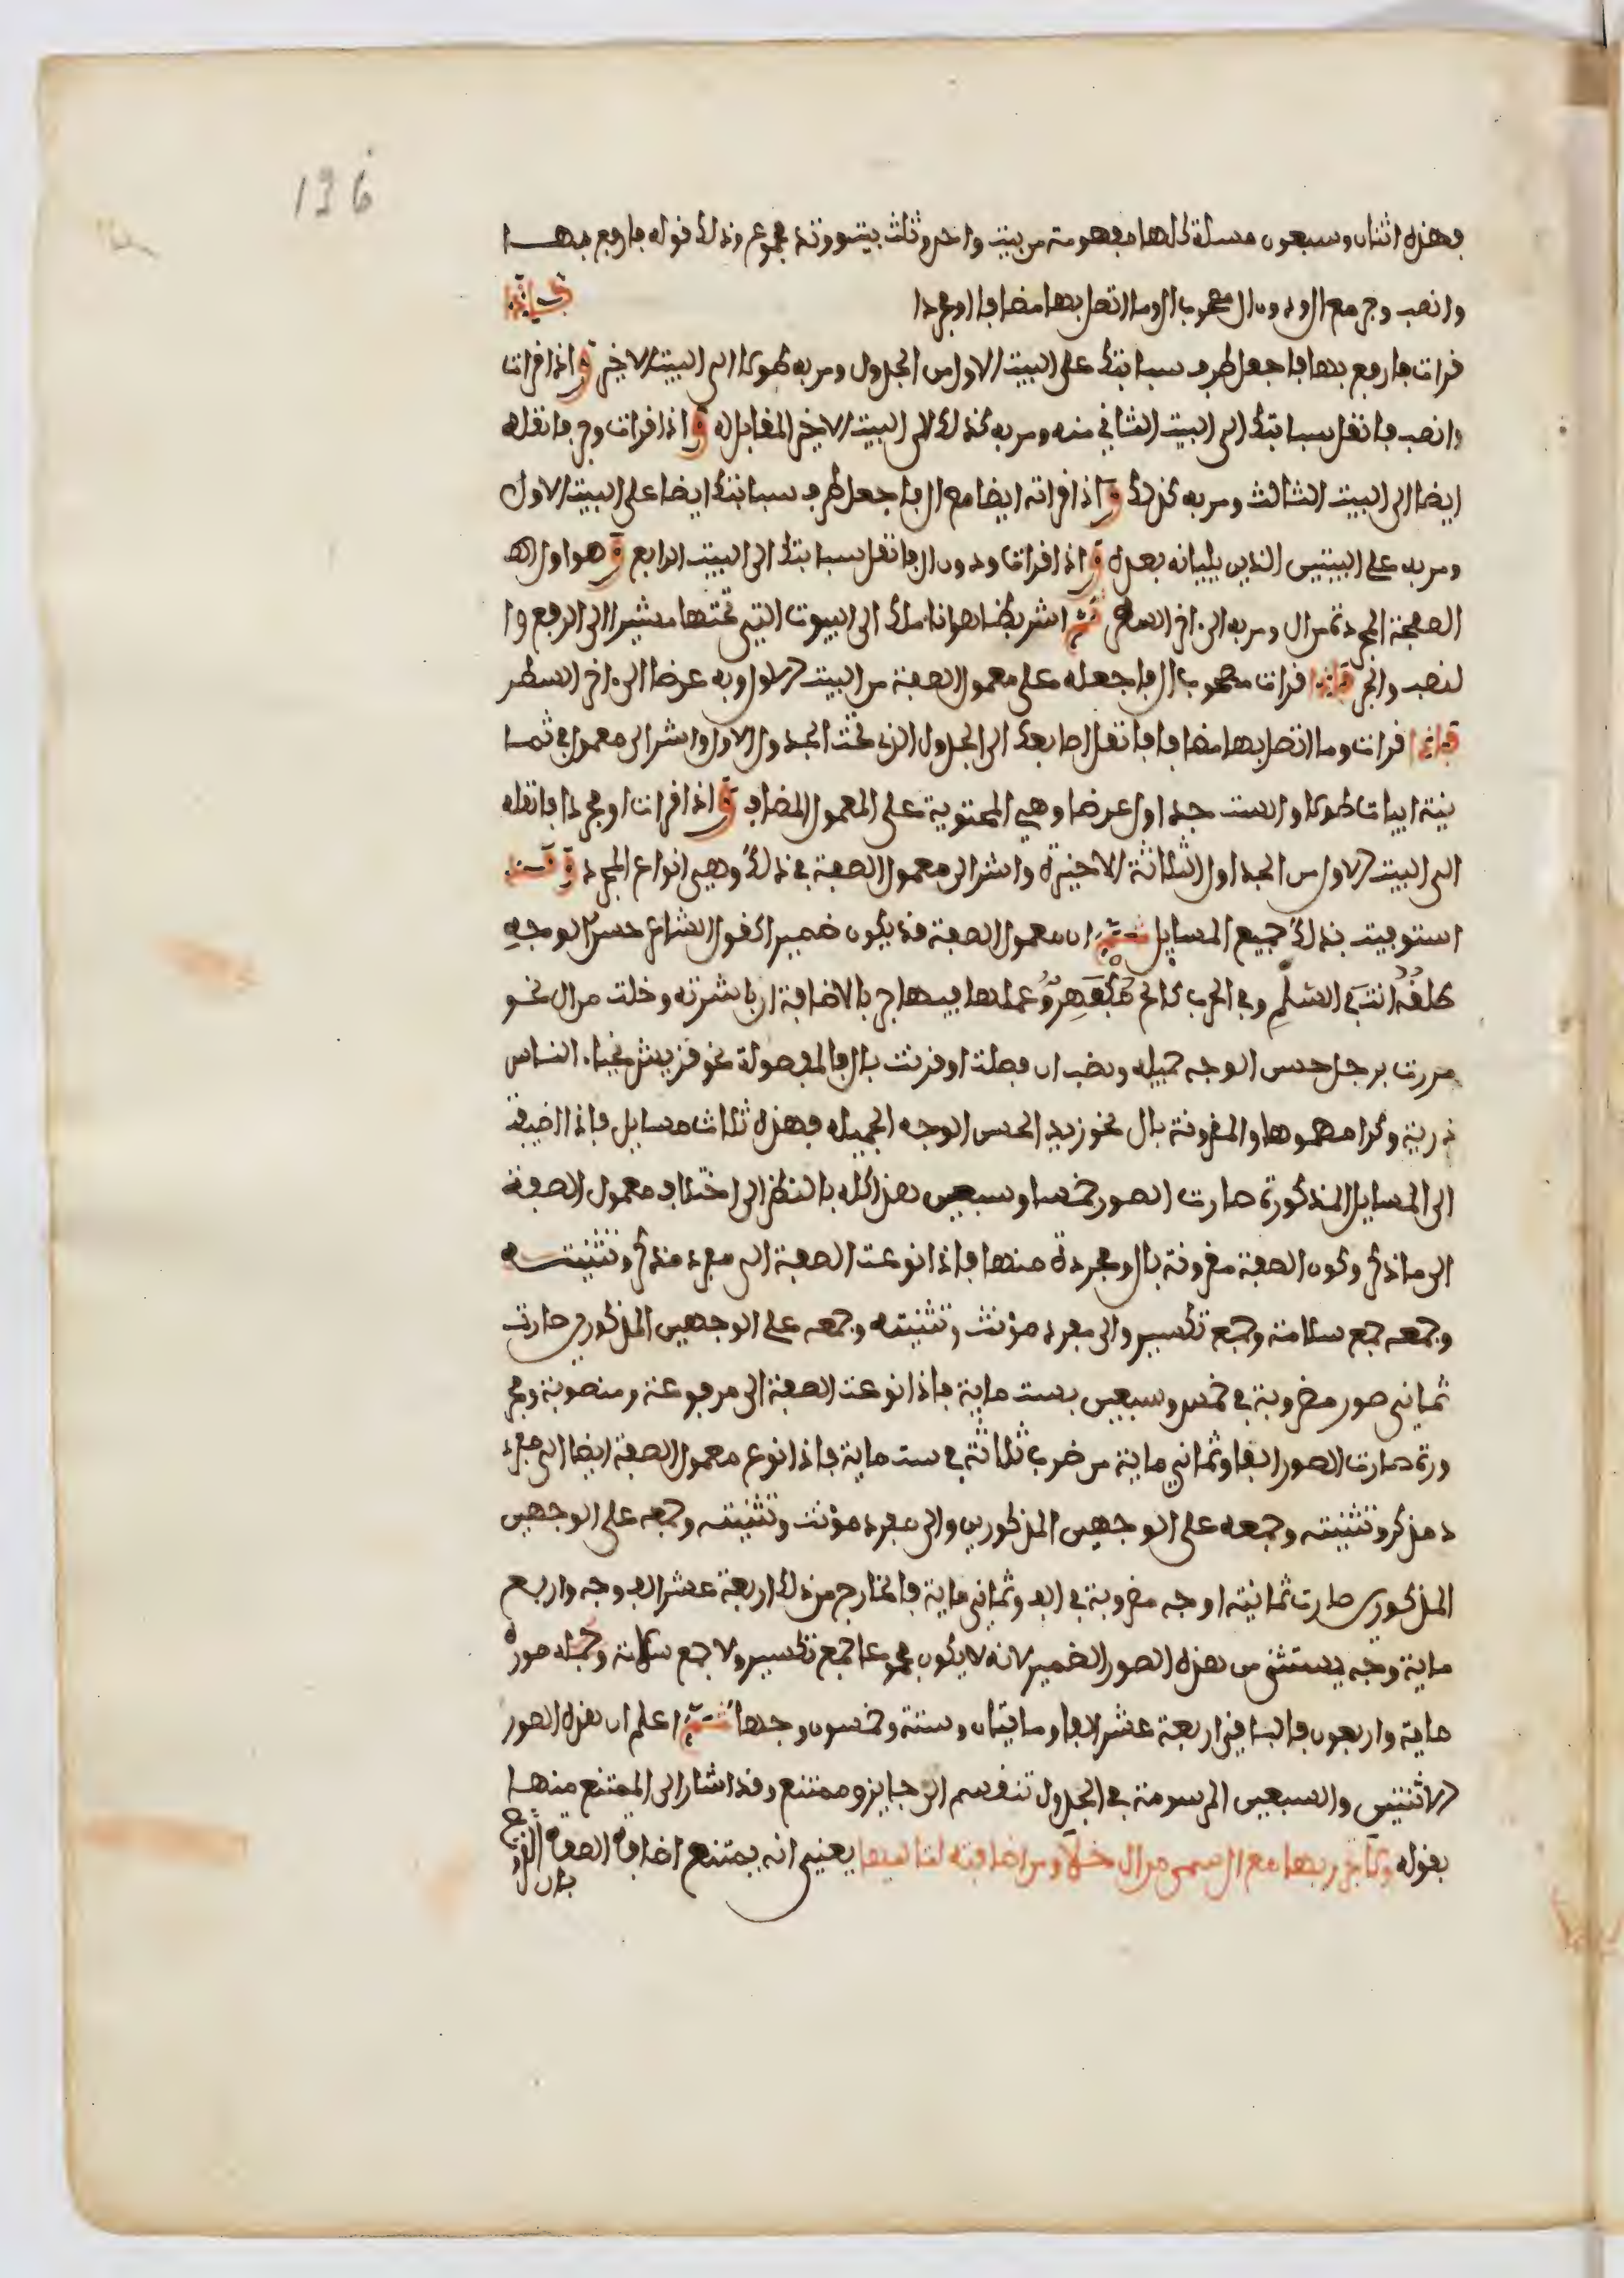 136
فهذه اثنان وسبعون مسلة كلها مفهومة من بيت واحد وثلث بيت ووتد مجموع وذلك قوله فارفع بهــا
وانصب وجر مع ال ودون ال مصحوب ال وما اتصل بها مضافا او مجردا فــاذا
قرات فارفع بها فاجعل طرف سبابتك على البيت الاول من الجدول ومر به طولا الى البيت الاخير واذا قرات
وانصب فانقل سبابتك الى البيت الثاني منه ومر به كذلك الى البيت الاخير المقابل له واذا قرات وجر فانقله
ايضا الى البيت الثالث ومر به كذلك واذا قراته ايضا مع ال فاجعل طرف سبابتك ايضا على البيت الاول
ومر به على البيتين الذين يليانه بعده واذا قرات ودون ال فانقل سبابتك الى البيت الرابع وهو اول الصـ
الصفة المجردة من ال ومر به الى اخر السطر ثم اشر بظاهر اناملك الى البيوت التي تحتها مشيرا الى الرفع وا
لنصب والجر فاذا قرات مصحوب ال فاجعله على معمول الصفة من البيت الاول وبه عرضا الى اخر السطر
فاذا قرات وما اتصل بها مضافا فانقل اصابعك الى الجدول الذي تحت الجدول الاول واشر الى معمول في ثمــا
نية ابيات طولا والست جداول عرضا وهي المحتوية على المعمول المضاف واذا قرات او مجردا فانقله
الى البيت الاول من الجداول الثلاثة الاخيرة واشر الى معمول الصفة في ذلك وهي انواع المجرد وقــد
استوفيت بذلك جميع المسايل ثــم ان معمول الصفة قد يكون ضميرا كقول الشاعر حسن الوجه
طلقه انت في السلم وفي الحرب كالح مكفهر وعملها فيها جر بالاضافة ان باشرته وخلت من ال نحو
مررت برجل حسن الوجه جميله ونصب ان فصلت او قرنت بال فالمفصولة نحو قريش نجباء الناس
ذرية وكرامهموها والمقرونة بال نحو زيد الحسن الوجه الجميله فهذه ثلاث مسايل فاذا اضيفت
الى المسايل المذكورة صارت الصور خمسا وسبعين هذا كله بالنظر الى اختلاف معمول الصفة
الى ما ذكر وكون الصفة مقرونة بال ومجردة منها فاذا نوعت الصفة الى مفرد مذكر وتثنيتــه
وجمعه جمع سلامة وجمع تكسير والى مفرد مؤنث وتثنيته وجمعه على الوجهين المذكورين صارت
ثماني صور مضروبة في خمس وسبعين بست ماية فاذا نوعت الصفة الى مرفوعة ومنصوبة ومجر
ورة صارت الصور الفا وثماني ماية من ضرب ثلاثة في ست ماية فاذا نوع معمول الصفة ايضا الى مفرد
د مذكر وتثنيته وجمعه على الوجهين المذكورين والى مفرد مؤنث وتثنيته وجمعه على الوجهين
المذكورين صارت ثمانية اوجه مضروبة في الف وثماني ماية فالخارج من ذلك اربعة عشر الف وجه واربع
ماية وجه يستثنى من هذه الصور الضمير لانه لا يكون مجموعا جمع تكسير ولا جمع سلامة وجملة صوره
ماية واربعون فالباقي اربعة عشر الفا ومايتان وستة وخمسون وجها ثــم اعلم ان هذه الصور
الاثنتين والسبعين المرسومة في الجدول تنقسم الى جايز وممتنع وقد اشار الى الممتنع منهــا
بقوله ولا تجرر بها مع ال سمى من ال خلا ومن اضافة لتاليها يعني انه يمتنع اضافة الصفة المقرو
بال ال